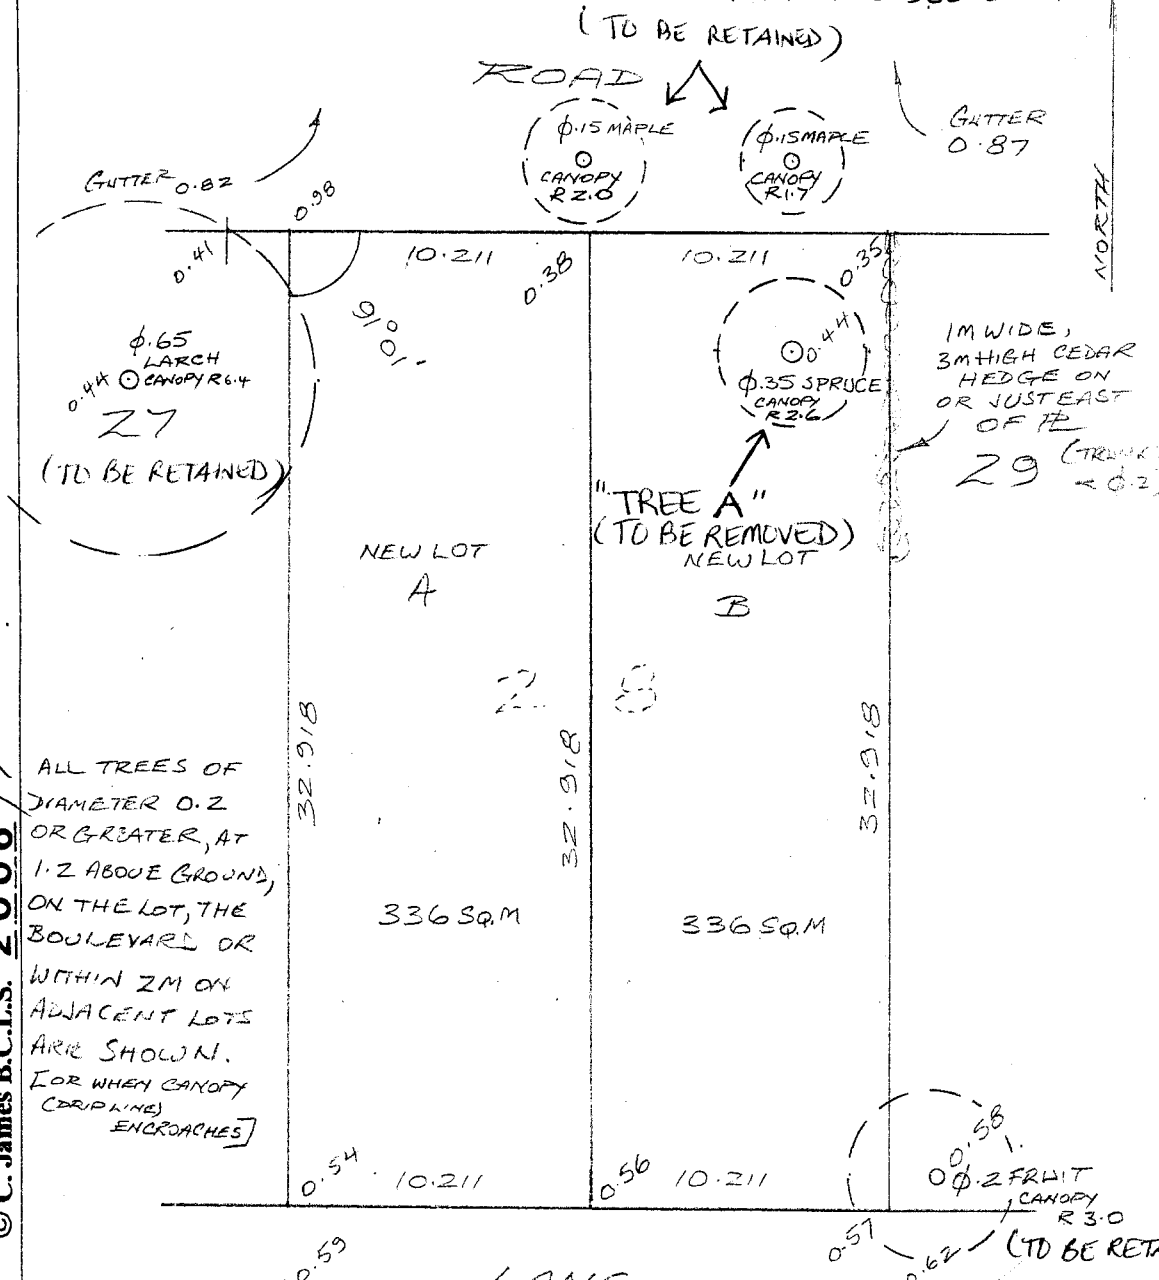 (TO BE RETAINED)
ROAD
φ.15 MAPLE
CANOPY
R 2.0
φ.15 MAPLE
CANOPY
R 1.7
GUTTER
0.87
NORTH
GUTTER 0.82
0.98
0.41
10.211
0.38
10.211
0.35
φ.65
LARCH
0.44 CANOPY R 6.4
27
(TO BE RETAINED)
0.44
φ.35 SPRUCE
CANOPY
R 2.6
"TREE A"
(TO BE REMOVED)
1M WIDE,
3M HIGH CEDAR
HEDGE ON
OR JUST EAST
OF PL
29
NEW LOT
A
NEW LOT
B
28
32.918
32.918
32.918
ALL TREES OF
DIAMETER 0.2
OR GREATER, AT
1.2 ABOVE GROUND,
ON THE LOT, THE
BOULEVARD OR
WITHIN 2M ON
ADJACENT LOTS
ARE SHOWN.
[OR WHEN CANOPY
(DRIPLINE)
ENCROACHES]
336 SQ.M
336 SQ.M
© C. James B.C.L.S.
0.54
10.211
0.56
10.211
0.58
φ.2 FRUIT
CANOPY
R 3.0
0.57
0.62
(TO BE
0.59